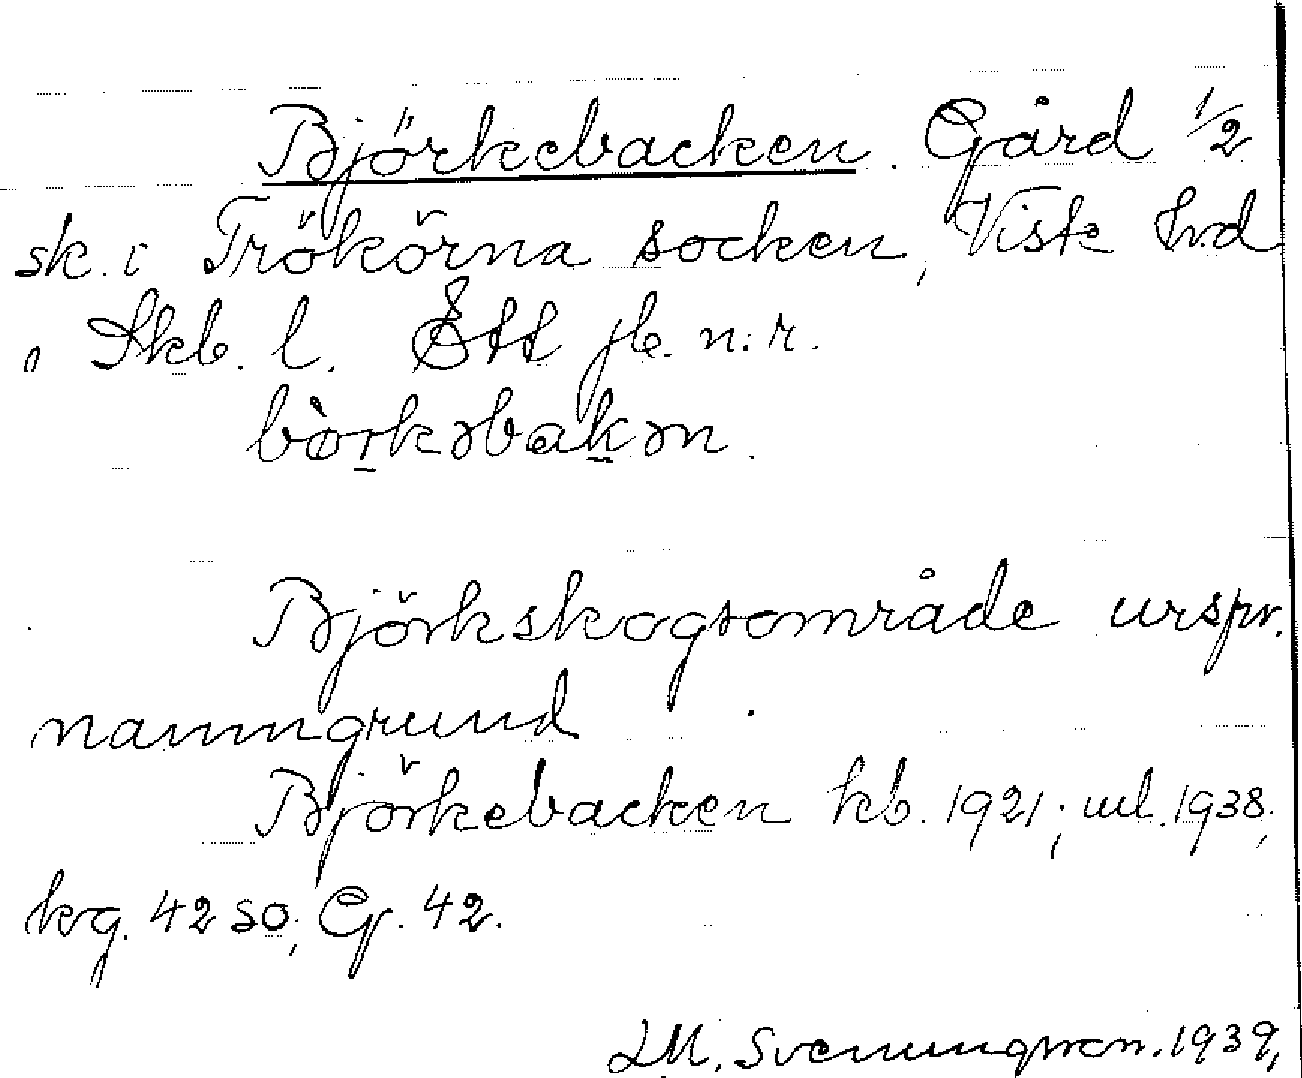 Björkebacken. Gård 1/2
sk. i Trökörna socken, Viste hd
, Skb. l. Ett jb. n:r.
bö̀rkəbakən.
Björkskogsområde urspr.
namngrund.
Björkebacken kb. 1921; ml. 1938;
krg. 42 so; G. 42.
Svenungsson. 1939,